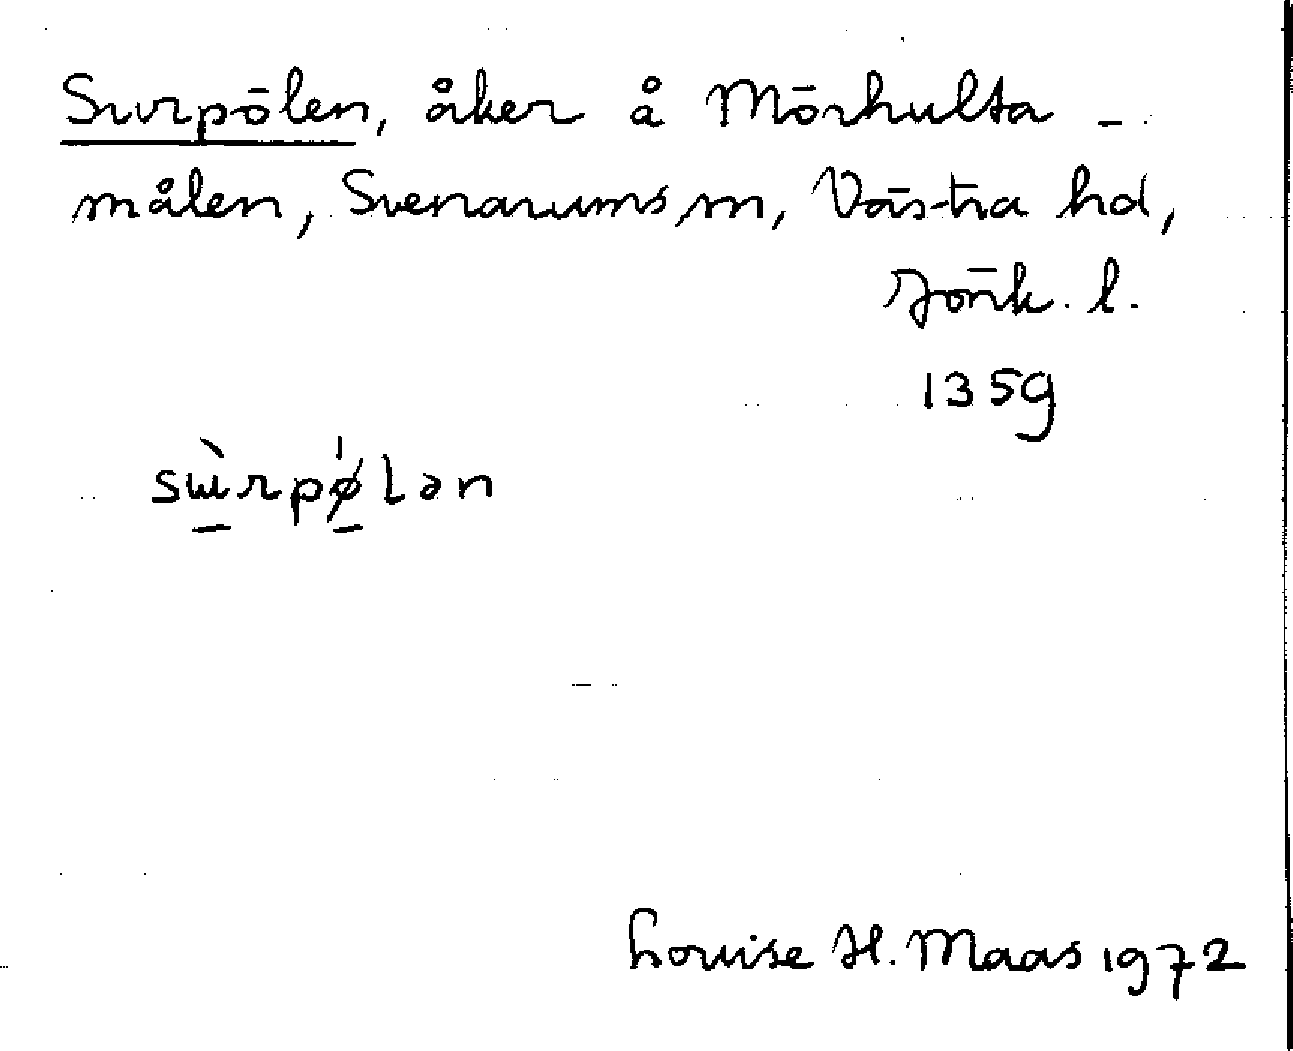 Surpölen, åker å Mörhulta -
målen, Svenarums sn, Västra hd,
Jönk. l.
1359
sɯ̀rpǿlən
Louise H. Maas 1972